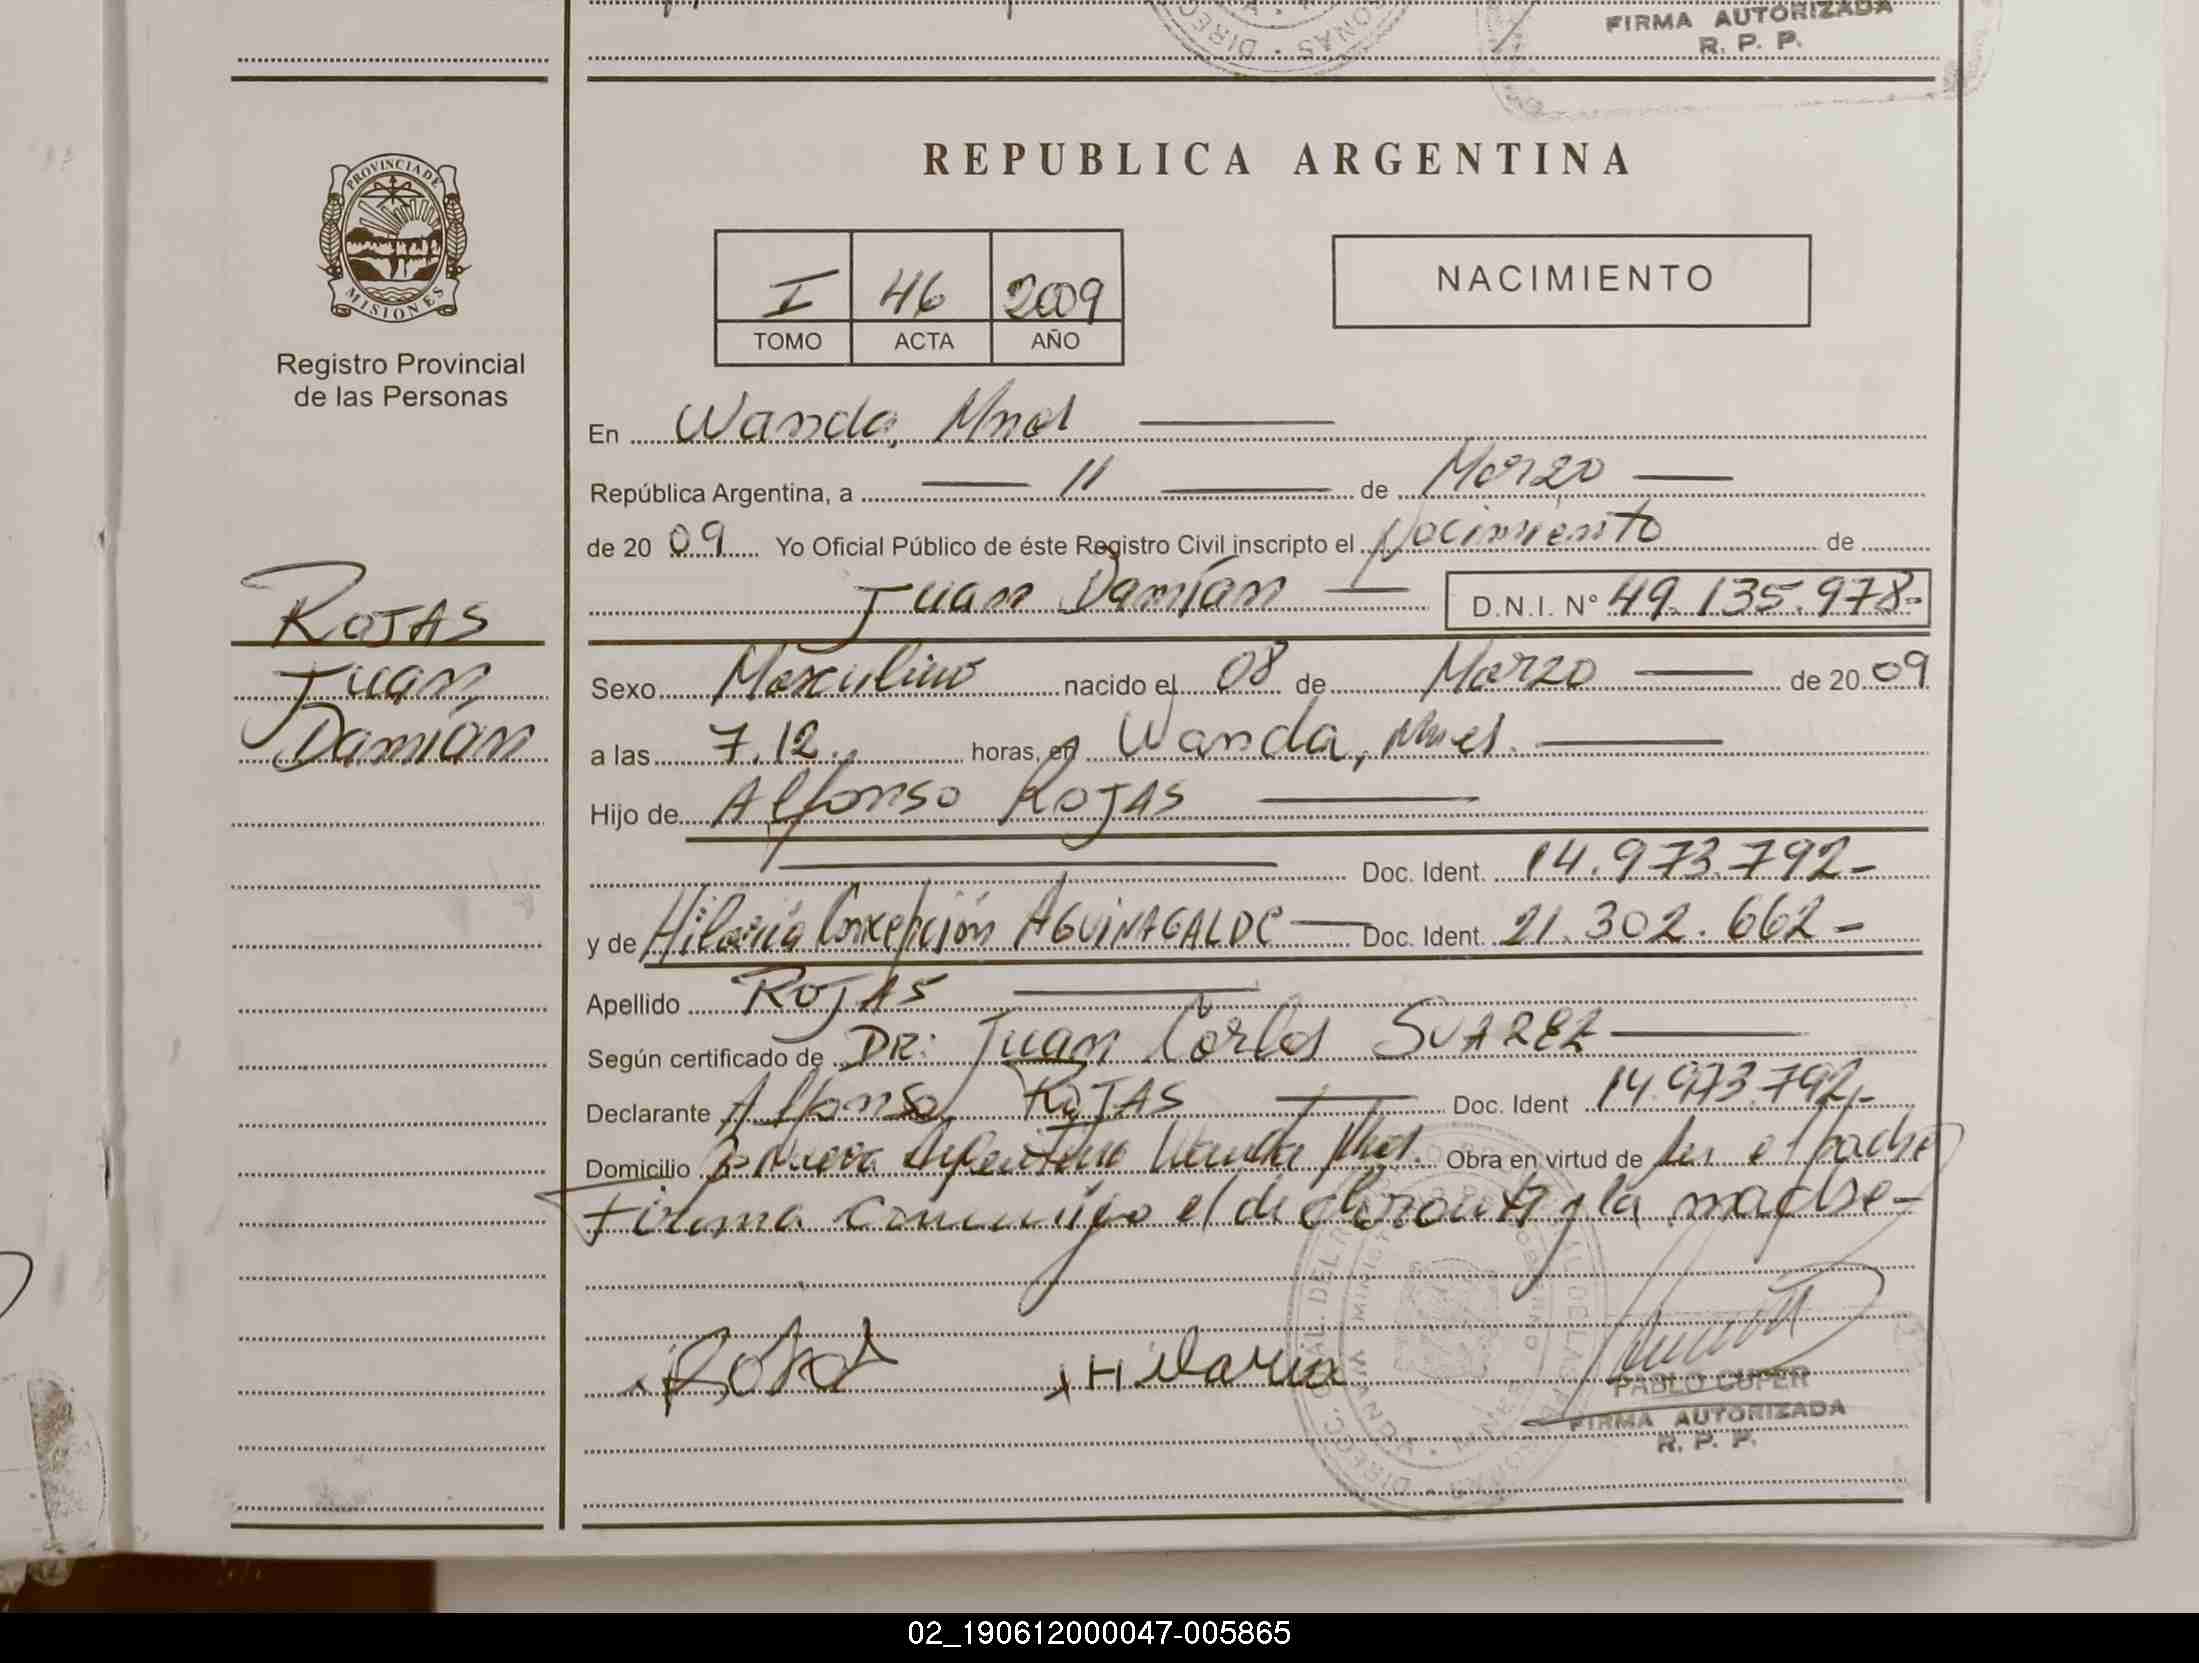 FIRMA AUTORIZADA
R. P. P.
PROVINCIA DE
MISIONES
Registro Provincial
de las Personas
REPUBLICA ARGENTINA
I 46 2009
TOMO ACTA AÑO
NACIMIENTO
En Wanda, Mnes
República Argentina, a 11 de Marzo
de 20 09 Yo Oficial Público de éste Registro Civil inscripto el Nacimiento de
Juan Damián D.N.I. N° 49.135.978-
ROJAS
Juan
Damián
Sexo Masculino nacido el 08 de Marzo de 20 09
a las 7.12. horas, en Wanda, Mnes.
Hijo de Alfonso ROJAS
Doc. Ident. 14.973.792-
y de Hilaria Concepción AGUINAGALDE Doc. Ident. 21.302.662-
Apellido ROJAS
Según certificado de DR: Juan Carlos SUAREZ
Declarante Alfonso ROJAS Doc. Ident 14.973.792-
Domicilio Bº Nueva Argentina Wanda Mnes. Obra en virtud de ser el padre
Firma conmigo el declarante y la madre-
x Rojas x Hilaria
PABLO CUPER
FIRMA AUTORIZADA
R. P. P.
02_190612000047-005865